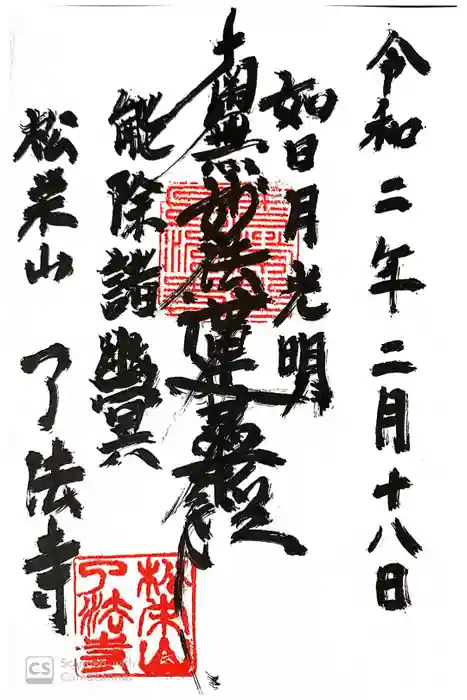 令和二年二月十八日
如日月光明
南無妙法蓮華経
能除諸幽冥
松栄山 了法寺
松栄山
了法寺
CS